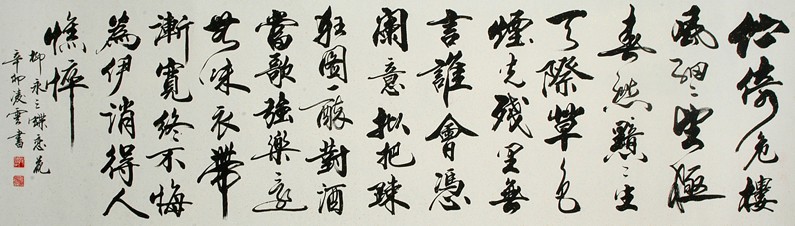 佇倚危樓
風細〻望極
春愁黯〻生
天際草色
煙光殘里無
言誰會憑
闌意擬把疎
狂圖一醉對酒
當歌強樂還
無味衣帶
漸寬終不悔
為伊消得人
憔悴
柳永之蝶恋花
辛卯凌雲書